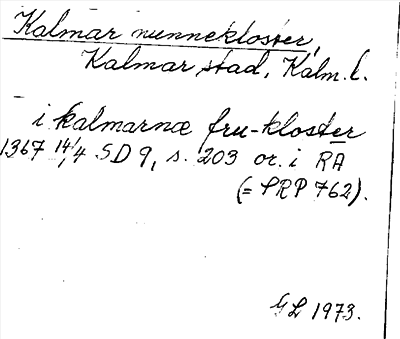 Kalmar nunnekloster,
Kalmar stad, Kalm. l.
i kalmarnæ fru-kloster
1367 14/4 SD 9, s. 203 or. i RA
(= SRP 762).
GL 1973.